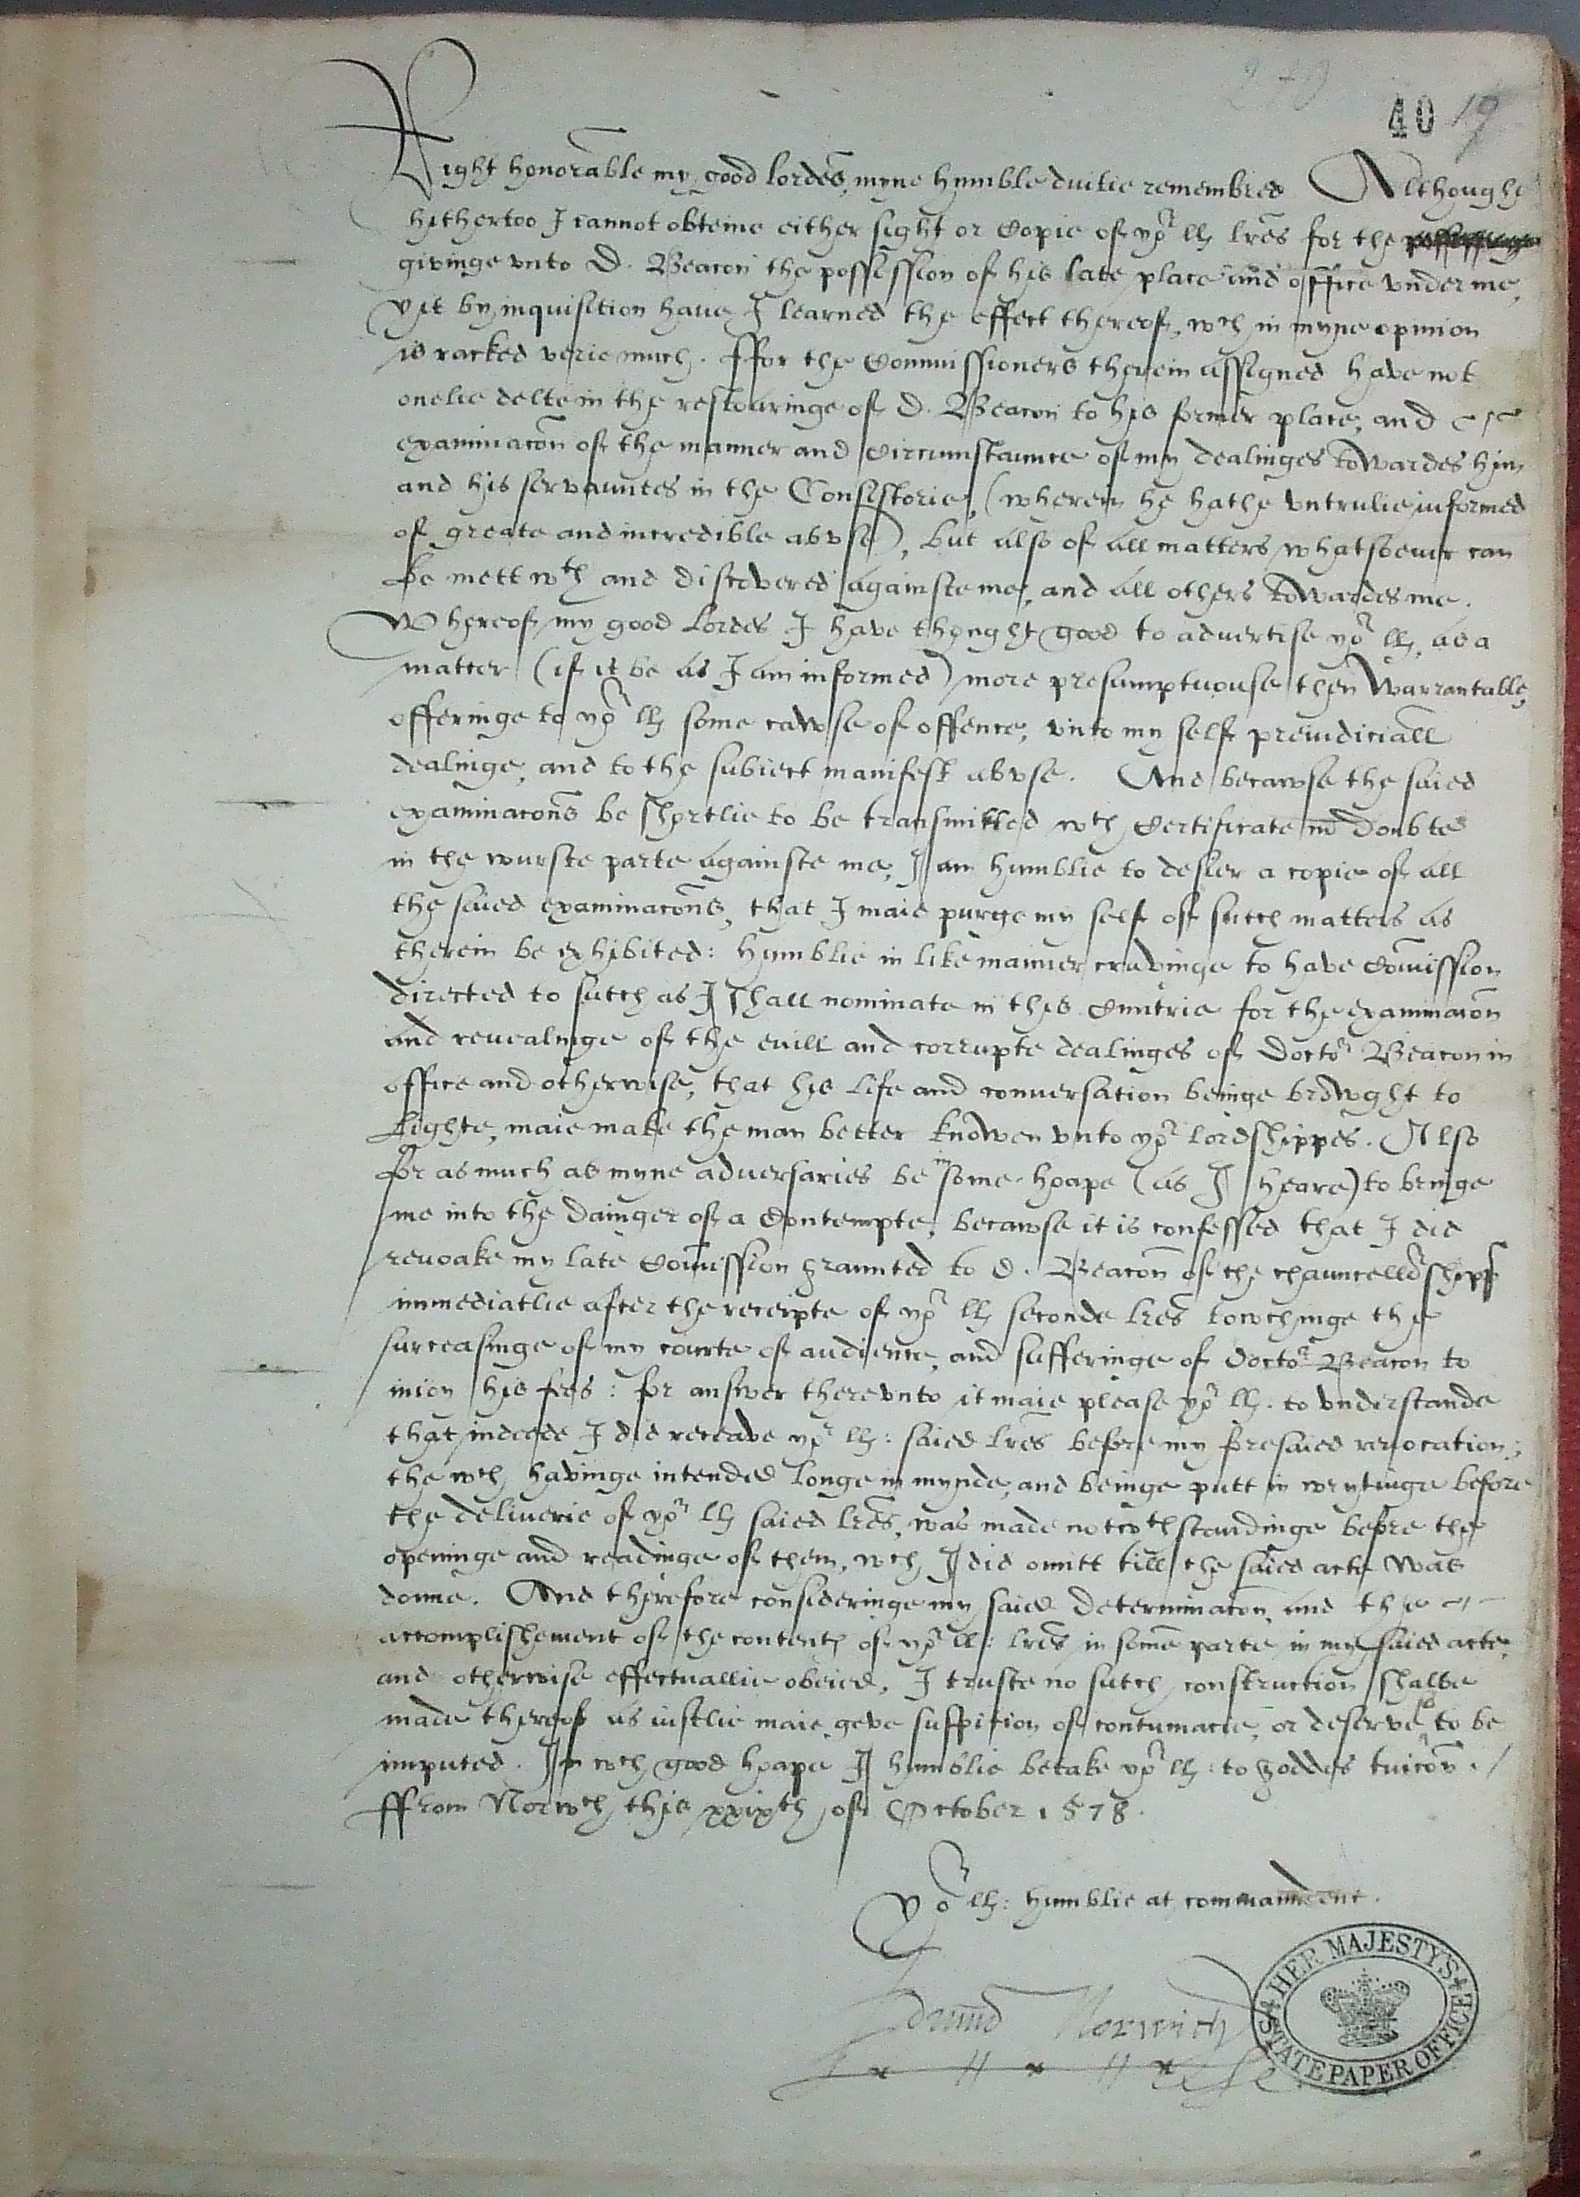 40 19
Right honorable my good lordes, myne humble duitie remembred Althoughe
hithertoo I cannot obteine either sight or Copie of yor ll lres for the
givinge vnto D. Beacon the possession of his late place and office vnder me,
yet by inquisition haue I learned the effect thereof, wch in myne opinion
is racked verie much. ffor the Commissioners therein assigned have not
onelie delte in the restouringe of D. Beacon to his former place, and
examinacon of the manner and Circumstaunce of my dealinges towardes him
and his servauntes in the Consistorie, (wherein he hathe vntrulie informed
of greate and incredible abvse), but also of all matters whatsoeuer can
be mett wth and discovered againste me, and all others towardes me.
Whereof my good Lordes I have thought good to aduertise yor ll, as a
matter (if it be as I am informed) more presumptuouse then warrantable,
offeringe to yor ll some cawse of offence, vnto my self preiudiciall
dealinge, and to the subiect manifest abvse. And becawse the saied
examinacons be shortlie to be transmitted wth Certificate no doubte
in the wurste parte againste me, I am humblie to desier a copie of all
the saied examinacons, that I maie purge my self of sutch matters as
therein be exhibited: humblie in like manner cravinge to have Comission
directed to sutch as I shall nominate in this Cuntrie for the examinacon
and reuealinge of the euill and corrupte dealinges of Doctor Beacon in
office and otherwise, that his life and conuersation beinge browght to
lighte, maie make the man better knowen vnto yor lordshippes. Also
for as much as myne aduersaries be in some hoape (as I heare) to bringe
me into the dainger of a Contempte, becawse it is confessed that I did
reuoake my late Comission graunted to D. Beacon of the chauncellorshipp
immediatlie after the receipte of yor ll seconde lres towchinge the
surceasinge of my courte of audience, and sufferinge of Doctor Beacon to
inioy his fees: for answer therevnto it maie please yor ll. to vnderstande
that indeede I did receave yor ll: saied lres before my foresaied revocation;
the wch havinge intended longe in mynde, and beinge putt in wrytinge before
the deliuerie of yor ll saied lres, was made notwthstandinge before the
openinge and readinge of them, wch I did omitt till the saied acte was
donne. And therefore consideringe my saied determinacon, and the
accomplishement of the contentes of yor ll: lres in some parte in my saied acte,
and otherwise effectuallie obeied, I truste no sutch construction shalbe
made thereof as iustlie maie geve suspition of contumacie, or deserve so to be
imputed. In wch good hoape I humblie betake yor ll: to goddes tuicon./
ffrom Norwch this xxixth of October 1578.
Yor ll: humblie at commandent.
Edmund Norwich
HER MAJESTY'S
STATE PAPER OFFICE